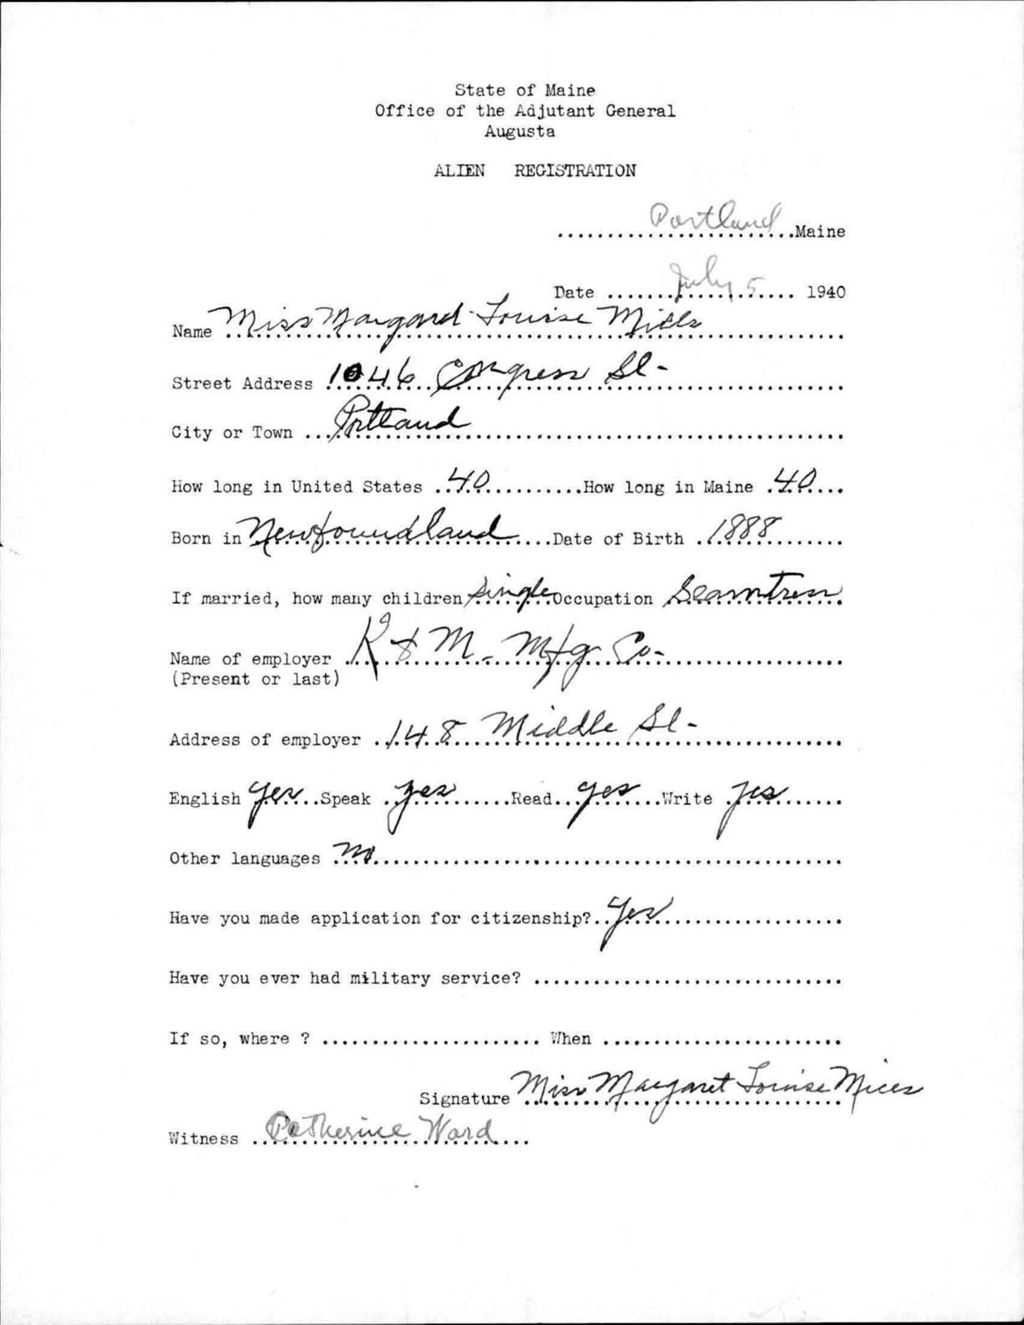 State of Maine
Office of the Adjutant General
Augusta
ALIEN REGISTRATION
Portland Maine
Date July 5 1940
Name Miss Margaret Louise Mills
Street Address 1046 Congress St-
City or Town Portland
How long in United States 40 How long in Maine 40
Born in Newfoundland Date of Birth 1888
If married, how many children single Occupation Seamtress
Name of employer R & M- Mfg Co-
(Present or last)
Address of employer 148 Middle St-
English Yes Speak yes Read yes Write yes
Other languages No
Have you made application for citizenship? Yes
Have you ever had military service?
If so, where ? When
Signature Miss Margaret Louise Mills
Witness Catherine Ward